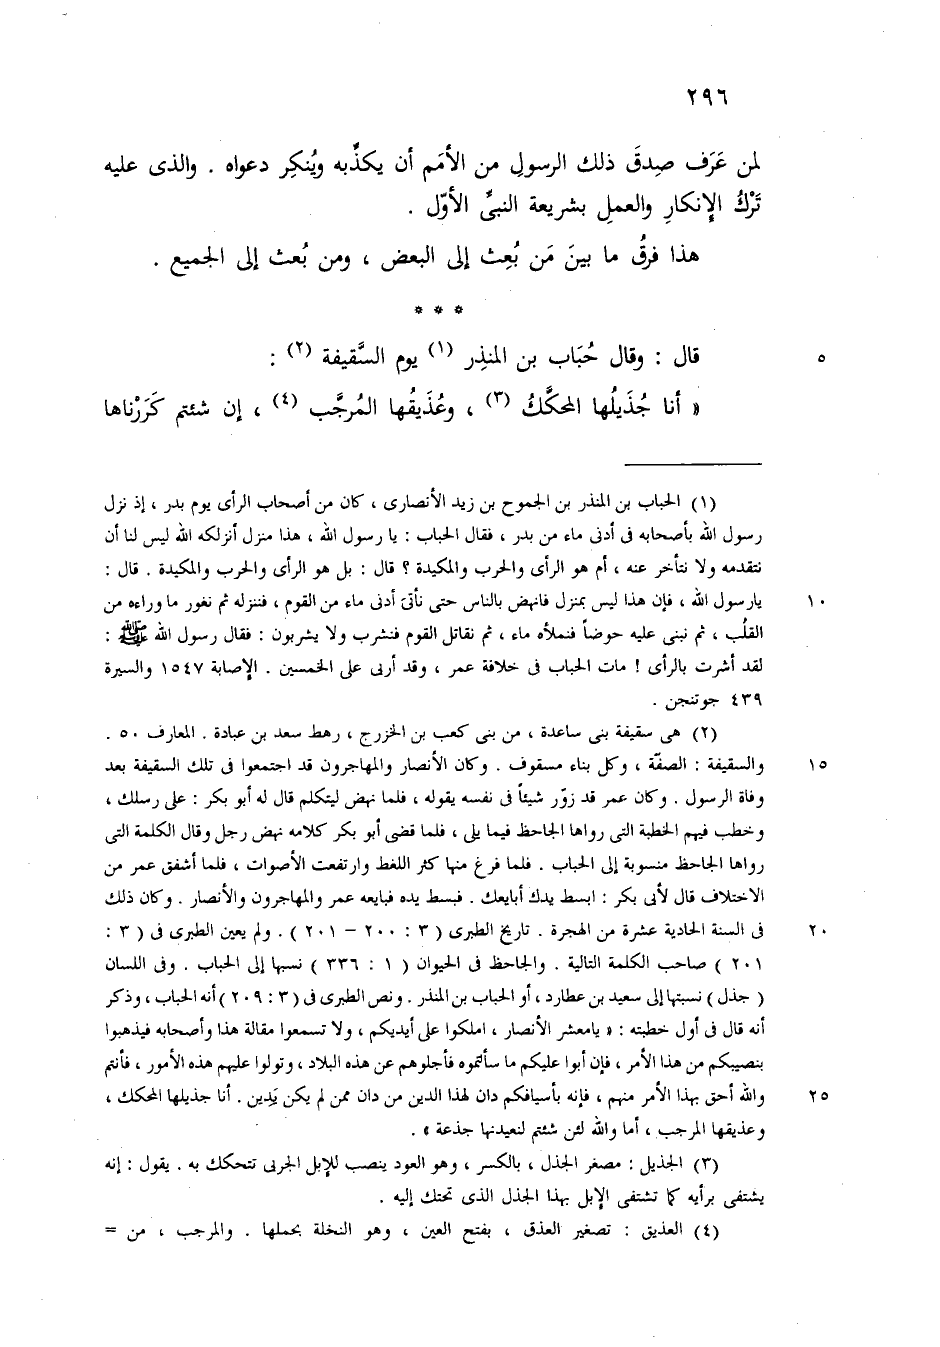 ٢٩٦
لمن عَرَف صِدقَ ذلك الرسولِ من الأمَم أن يكذِّبه ويُنكِر دعواه . والذى عليه
تَرْكُ الإنكارِ والعملِ بشريعة النبىِّ الأوّل .
هذا فرقُ ما بينَ مَن بُعِث إلى البعض ، ومن بُعث إلى الجميع .
* * *
قال : وقال حُبَاب بن المنذِر (١) يوم السَّقيفة (٢) : ٥
« أنا جُذَيلُها المحكَّكُ (٣) ، وعُذَيقُها المُرجَّب (٤) ، إن شئتم كَرَرْناها
(١) الحباب بن المنذر بن الجموح بن زيد الأنصارى ، كان من أصحاب الرأى يوم بدر ، إذ نزل
رسول الله بأصحابه فى أدنى ماء من بدر ، فقال الحباب : يا رسول الله ، هذا منزل أنزلكه الله ليس لنا أن
نتقدمه ولا نتأخر عنه ، أم هو الرأى والحرب والمكيدة ؟ قال : بل هو الرأى والحرب والمكيدة . قال :
يارسول الله ، فإن هذا ليس بمنزل فانهض بالناس حتى نأتى أدنى ماء من القوم ، فننزله ثم نغور ما وراءه من ١٠
القلُب ، ثم نبنى عليه حوضاً فنملأه ماء ، ثم نقاتل القوم فنشرب ولا يشربون : فقال رسول الله ﷺ :
لقد أشرت بالرأى ! مات الحباب فى خلافة عمر ، وقد أربى على الخمسين . الإصابة ١٥٤٧ والسيرة
٤٣٩ جوتنجن .
(٢) هى سقيفة بنى ساعدة ، من بنى كعب بن الخزرج ، رهط سعد بن عبادة . المعارف ٥٠ .
والسقيفة : الصفّة ، وكل بناء مسقوف . وكان الأنصار والمهاجرون قد اجتمعوا فى تلك السقيفة بعد ١٥
وفاة الرسول . وكان عمر قد زوّر شيئاً فى نفسه يقوله ، فلما نهض ليتكلم قال له أبو بكر : على رسلك ،
وخطب فيهم الخطبة التى رواها الجاحظ فيما يلى ، فلما قضى أبو بكر كلامه نهض رجل وقال الكلمة التى
رواها الجاحظ منسوبة إلى الحباب . فلما فرغ منها كثر اللغط وارتفعت الأصوات ، فلما أشفق عمر من
الاختلاف قال لأبى بكر : ابسط يدك أبايعك . فبسط يده فبايعه عمر والمهاجرون والأنصار . وكان ذلك
فى السنة الحادية عشرة من الهجرة . تاريخ الطبرى ( ٣ : ٢٠٠ – ٢٠١ ) . ولم يعين الطبرى فى ( ٣ : ٢٠
٢٠١ ) صاحب الكلمة التالية . والجاحظ فى الحيوان ( ١ : ٣٣٦ ) نسبها إلى الحباب . وفى اللسان
( جذل ) نسبتها إلى سعيد بن عطارد ، أو الحباب بن المنذر . ونص الطبرى فى ( ٣ : ٢٠٩ ) أنه الحباب ، وذكر
أنه قال فى أول خطبته : « يامعشر الأنصار ، املكوا على أيديكم ، ولا تسمعوا مقالة هذا وأصحابه فيذهبوا
بنصيبكم من هذا الأمر ، فإن أبوا عليكم ما سألتموه فأجلوهم عن هذه البلاد ، وتولوا عليهم هذه الأمور ، فأنتم
والله أحق بهذا الأمر منهم ، فإنه بأسيافكم دان لهذا الدين من دان ممن لم يكن يَدِين . أنا جذيلها المحكك ، ٢٥
وعذيقها المرجب ، أما والله لئن شئتم لنعيدنها جذعة » .
(٣) الجذيل : مصغر الجذل ، بالكسر ، وهو العود ينصب للإبل الجربى تتحكك به . يقول : إنه
يشتفى برأيه كما تشتفى الإبل بهذا الجذل الذى تحتك إليه .
(٤) العذيق : تصغير العذق ، بفتح العين ، وهو النخلة بحملها . والمرجب ، من =